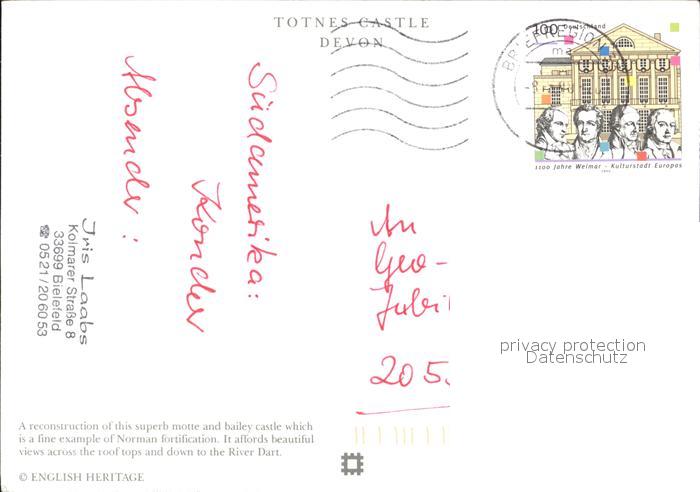 TOTNES CASTLE
DEVON
100 Deutschland
BRIEFREGION
1100 Jahre Weimar - Kulturstadt Europas
1999
Südamerika:
Kondor
Absender:
Iris Laabs
Kolmarer Straße 8
33699 Bielefeld
☎ 0521/206053
An
Geo-
Jubi
205.
privacy protection
Datenschutz
A reconstruction of this superb motte and bailey castle which
is a fine example of Norman fortification. It affords beautiful
views across the roof tops and down to the River Dart.
© ENGLISH HERITAGE